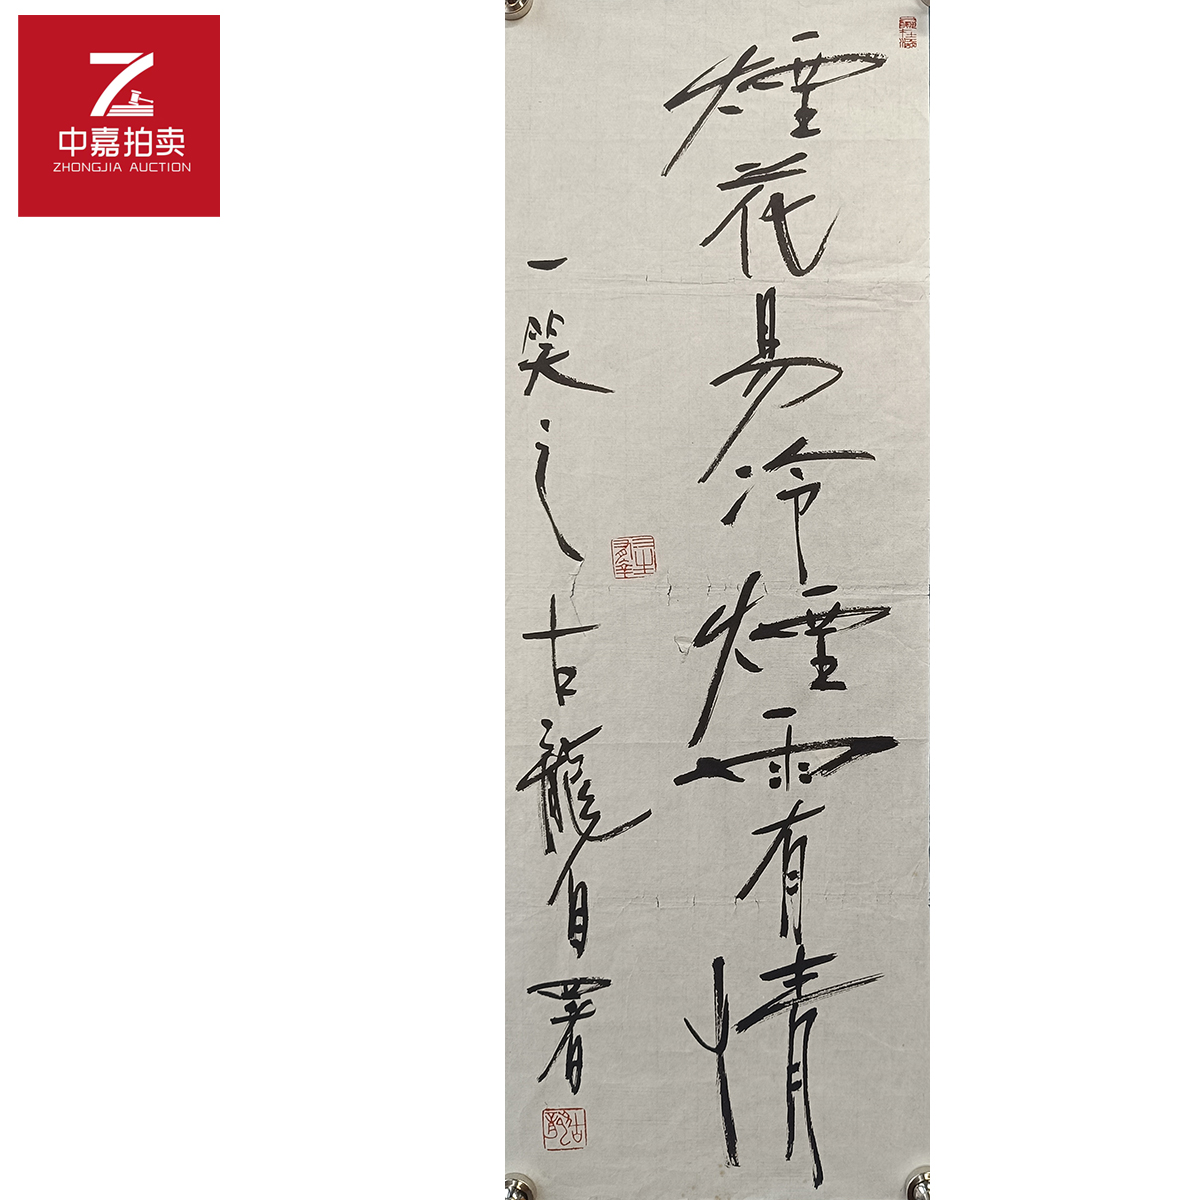 中嘉拍卖
ZHONGJIA AUCTION
煙花易冷煙雨有情
一笑之古龍自署